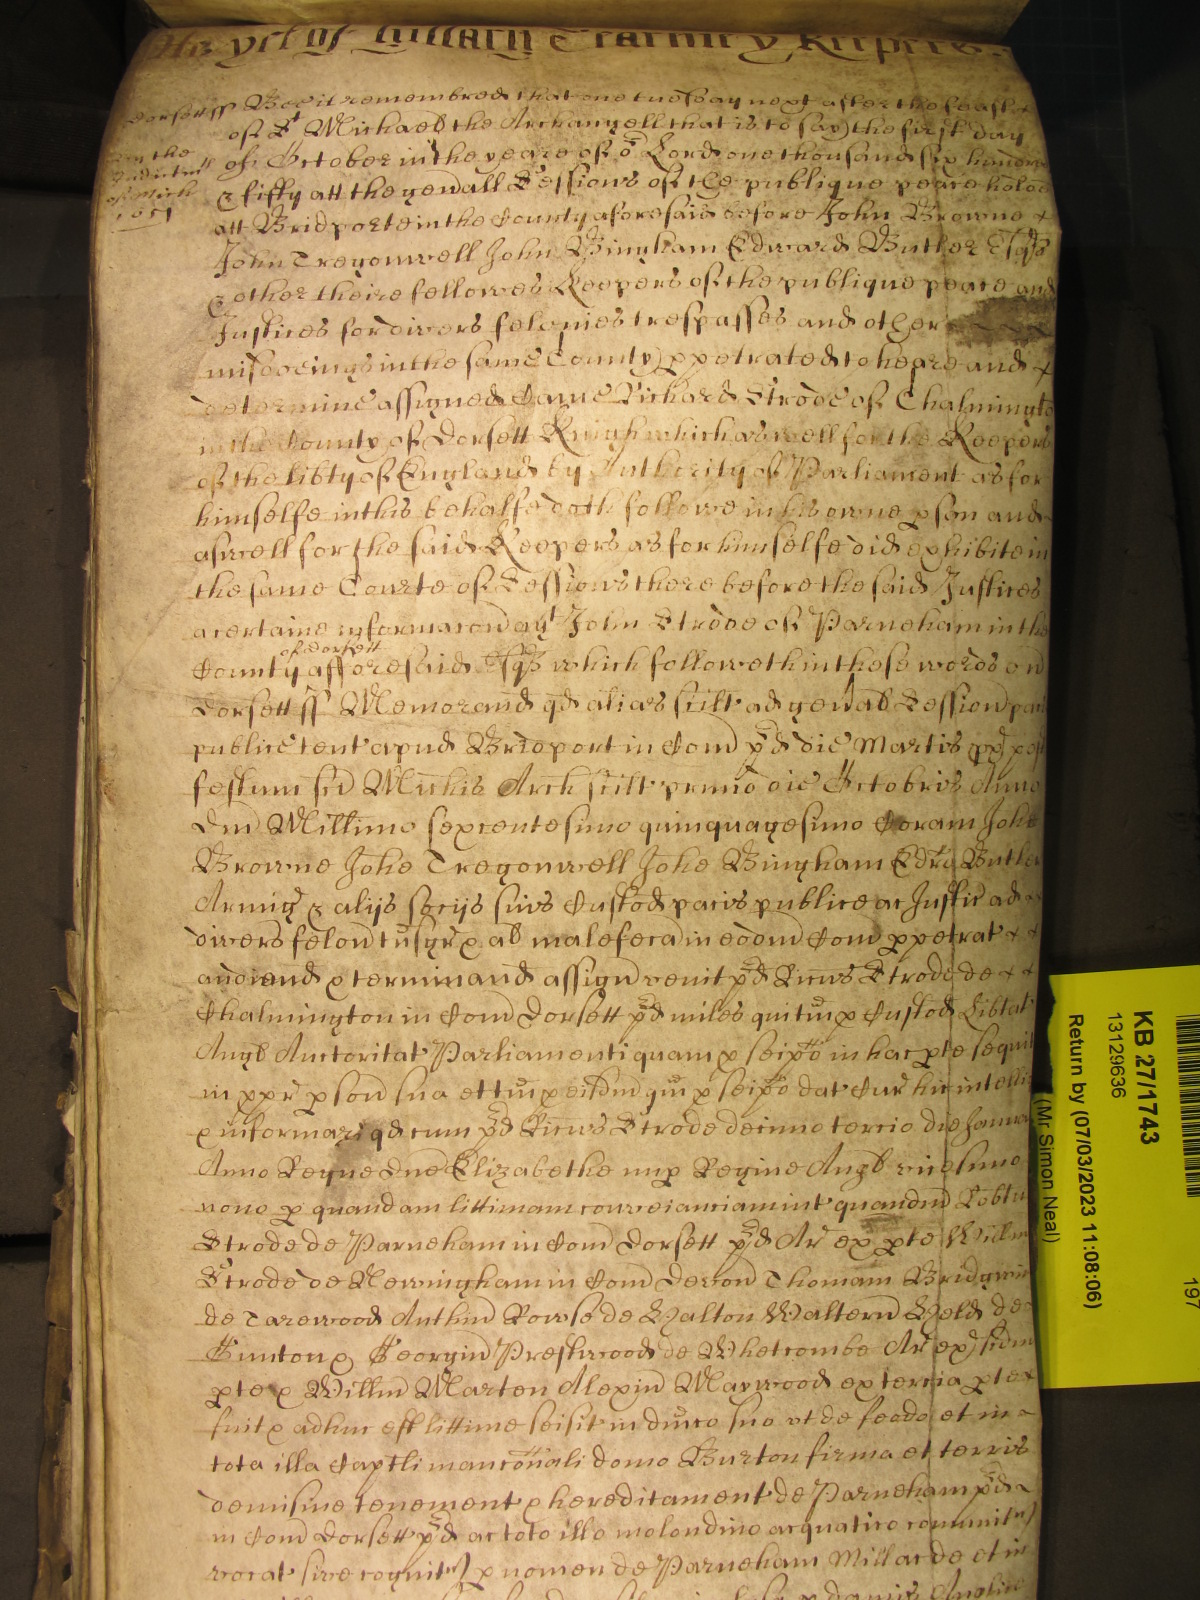 yet of Hillary Tearme Keepers
Dorsett ss Bee it remembred that one tuesday next after the feast
of St Michaell the Archangell that is to say the first day
of October in the yeare of or Lord one thousand six hundred
& fiffty att the genall Sessions of the publique peace holden
in the
of Mich
1651
att Bridporte in the County aforesaid before John Browne &
John Tregonwell John Bingham Edward Butler Esqrs
& other theire fellowes Keepers of the publique peace and
Justices for divers felonies trespasses and other
misdoeings in the same County ppetrated to heare and &
determine assigned Came Richard Strode of Chalmington
in the County of Dorsett Knight which aswell for the Keepers
of the libty of England by Authority of Parliament as for
himselfe in this behalfe doth followe in his owne pson and
aswell for the said Keepers as for himselfe did exhibite in
the same Courte of Sessions there before the said Justices
a certaine informacon agt John Strode of Parneham in the
of Dorsett
County afforesaid Esqr which followeth in these words
Dorsett ss Memorand qd alias scilt ad genal Session pacis
publice tent apud Bridport in Com pd die Martis px post
festum sci Michis Arch scilt primo die Octobris Anno
Dni Millimo sexcentesimo quinquagesimo Coram Johe
Browne Johe Tregonwell Johe Bingham Edro Butler
Armig & alijs socijs suis Custod pacis publice ac Justic ad
divers felon tnsgr & al malefca in eodm Com ppetrat & &
audiend & terminand assign venit pd Ricus Strode de & &
Chalmington in Com Dorsett pd miles qui tm p Custod Libtat
Angl Auctoritat Parliamenti quam p seipo in hac pte sequit
in ppr pson sua et tm p eisdm qm p seipo dat Cur hic intelli
& informari qd cum pd Ricus Strode decimo tercio die Januar
Anno Regne dne Elizabethe nup Regine Angl vicesimo
nono p quandam littimam conveianciam int quandm Robtu
Strode de Parneham in Com Dorsett pd Ar ex pte Willm
Strode de Newingham in Com Devon Thomam Bridgwin
de Tarewood Anthm Rowse de Halton Walterm Hele de
Gunton & Georgin Prestwood de Whetcombe Ar ex
pte & Willm Marten Alexin Maywood ex tercia pte &
fuit & adhuc est littime seisit in dnico suo ut de feodo et in
tota illa Captli mancionali domo Burton firma et terris
demisine tenement & hereditament de Parneham pd
in Com Dorsett pd ac toto illo molondino acquatico comunit
vocat sive cognit p nomen de Parneham Mill ac de et in
KB 27/1743
13129636
Return by (07/03/2023 11:08:06)
(Mr Simon Neal)
197